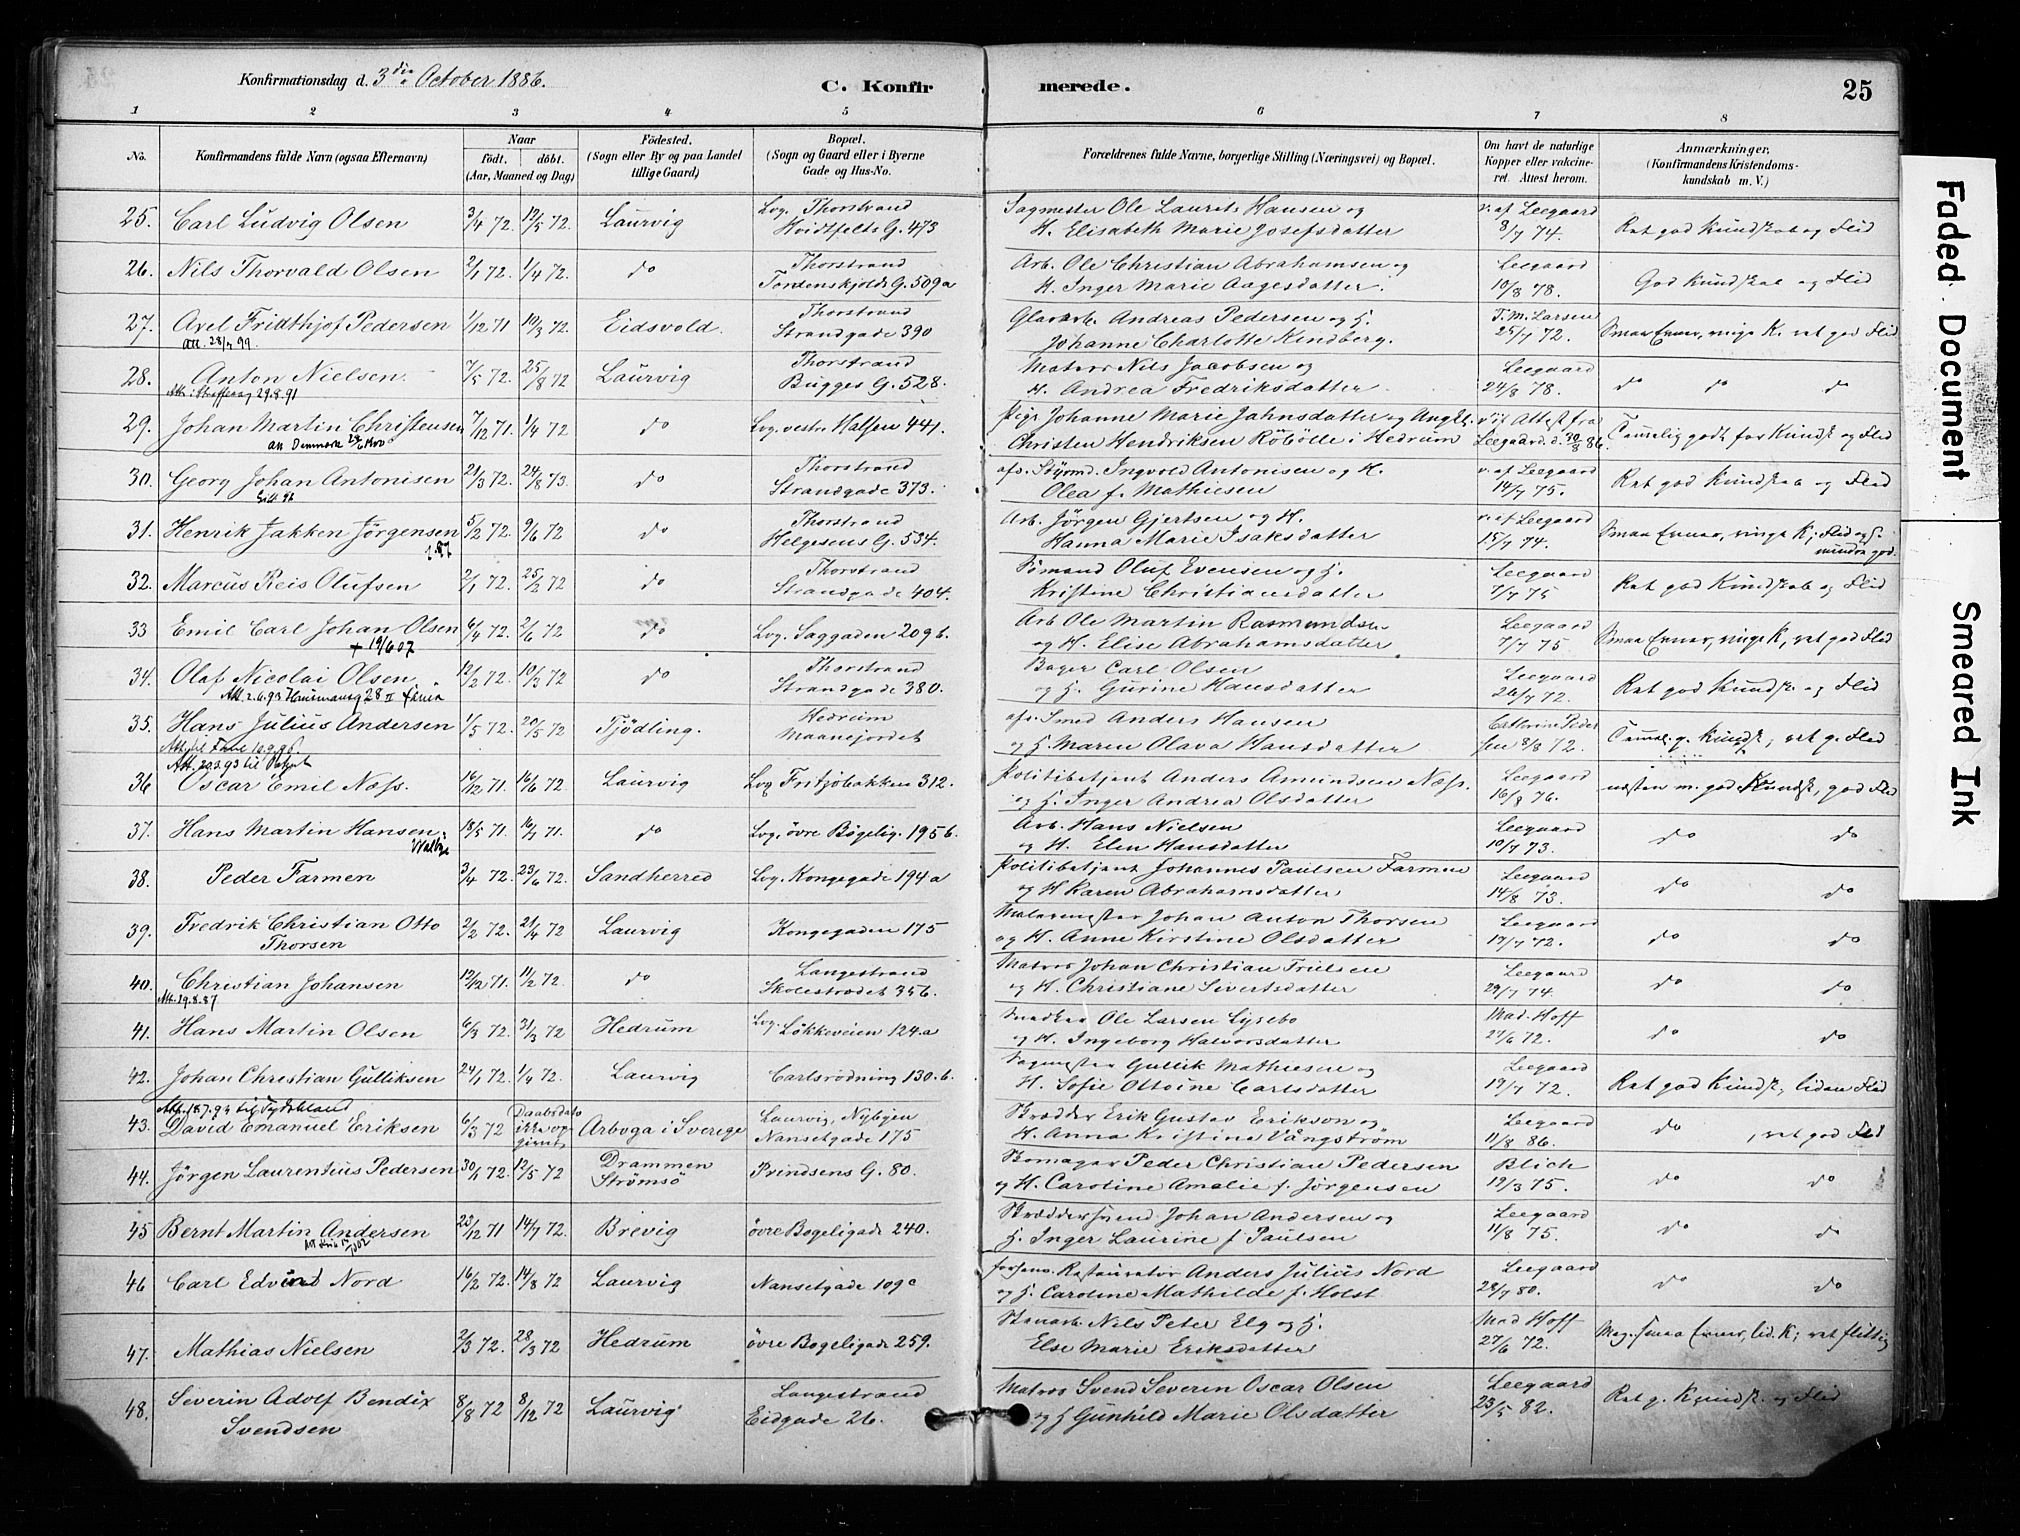 Konfirmationsdag d. 3die October 1886. C. Konfirmerede. 25
1 2 3 4 5 6 7 8
No. Konfirmandens fulde Navn (ogsaa Efternavn) Naar födt. döbt. (Aar, Maaned og Dag) Födested. (Sogn eller By og paa Landet tillige Gaard) Bopæl. (Sogn og Gaard eller i Byerne Gade og Hus-No. Forældrenes fulde Navne, borgerlige Stilling (Næringsvei) og Bopæl. Om havt de naturlige Kopper eller vakcineret. Attest herom. Anmærkninger, (Konfirmandens Kristendomskundskab m. V.)
25. Carl Ludvig Olsen 3/4 72. 12/5 72. Laurvig Lvg. Thorstrand Hvidtfelts G. 473 Sagmester Ole Laurits Hansen og H. Elisabeth Marie Josefsdatter v. af Leegaard 8/7 74. Ret god Kundskab og Flid
26. Nils Thorvald Olsen 2/1 72. 1/4 72. do Thorstrand Tordenskjolds G. 509a Arb. Ole Christian Abrahamsen og H. Inger Marie Aagesdatter. Leegaard 10/8 78. God Kundskab og Flid
27. Axel Fridthjof Pedersen 1/12 71 10/3 72. Eidsvold. Thorstrand Strandgade 390 Glasarb. Andreas Pedersen og H. Johanne Charlotte Kindberg. T. M. Larsen 25/7 72. Smaa Evner, ringe K. ret god Flid
Att. 28/7 99
28. Anton Nielsen. 7/5 72. 25/8 72 Laurvig Thorstrand Bugges G. 528. Matros Nils Jacobsen og H. Andrea Fredriksdatter. Leegaard 24/8 78. do do do
29. Johan Martin Christensen 7/12 71. 1/4 72 do Lvg. vestr. Halsen 441. Pige Johanne Marie Jahnsdatter og Ungk. Christen Hendriksen Röbölle i Hedrum v. if Attest fra Leegaard d. 30/8 86. Temmelig godt for Kundsk og Flid
30. Georg Johan Antonisen 21/3 72. 24/8 73. do Thorstrand Strandgade 373. afs. Styrmd. Ingvold Antonisen og H. Olea f. Mathiesen v. af Leegaard 14/7 75. Ret god Kundskab og Flid
31. Henrik Jakken Jörgensen 5/2 72. 9/6 72 do Thorstrand Helgesens G. 534. Arb. Jörgen Gjertsen og H. Hanna Marie Isaksdatter v. af Leegaard 15/7 74. Smaa Evner, ringe K; Flid og F. mindre god.
32. Marcus Reis Olufsen 2/1 72. 25/2 72 do Thorstrand Strandgade 404. Sömand Oluf Evensen og H. Kristine Christiansdatter Leegaard 7/7 75 Ret god Kundskab og Flid
33 Emil Carl Johan Olsen 6/4 72. 2/6 72 do Lvg. Saggaden 209 b. Arb Ole Martin Rasmundsen og H. Elise Abrahamsdatter Leegaard 7/7 75 Smaa Evner, ringe K, ret god Flid
+ 19/6 07
34. Olaf Nicolai Olsen 12/2 72. 10/3 72 do Thorstrand Strandgade 380. Bager Carl Olsen og H. Gurine Hansdatter Leegaard 26/7 72. Ret god Kundsk. og Flid
35. Hans Julius Andersen 1/5 72. 20/5 72 Tjödling. Hedrum Maanejordet afs. Smed Anders Hansen og H. Maren Olava Hansdatter Cathrine Pedersen 8/8 72. Temmel. g. Kundsk, ret g. Flid
36 Oscar Emil Næss. 16/12 71. 16/6 72 Laurvig Lvg Fritjöbakken 312. Politibetjent Anders Amundsen Næss. og H. Inger Andrea Olsdatter Leegaard 16/8 76. næsten m. god Kundsk, god Flid
37. Hans Martin Hansen. 18/5 71. 16/7 71. do Lvg, övre Bögelig. 195 b. Arb. Hans Nielsen og H. Elen Hansdatter Leegaard 10/7 73. do do
38. Peder Farmen 3/4 72. 23/6 72. Sandherred Lvg. Kongegade 194 a Politibetjent Johannes Paulsen Farmen og H Karen Abrahamsdatter Leegaard 14/8 73. do do
39. Fredrik Christian Otto Thorsen 2/2 72. 21/4 72 Laurvig Kongegaden 175 Malermester Johan Anton Thorsen og H. Anne Kirstine Olsdatter Leegaard 19/7 72. do do
40. Christian Johansen 12/12 71. 11/2 72. do Langestrand Skolestrædet 356. Matros Johan Christian Truelsen og H. Christiane Sivertsdatter Leegaard 29/7 74. do do
Att. 29.8.87
41. Hans Martin Olsen 6/3 72. 31/3 72 Hedrum Lvg. Lökkeveien 124.a Snedker Ole Larsen Lysebo og H. Ingeborg Halvorsdatter Mad. Hoff 27/6 72. do do
42. Johan Christian Gulliksen 24/1 72. 1/4 72. Laurvig Carlsrödning 130.b. Sagmester Gullik Mathiesen og H. Sofie Ottoine Carlsdatter Leegaard 19/7 72. Ret god Kundsk, liden Flid
43. David Emanuel Eriksen 6/3 72 Daabsdato ikke opgivet Arboga i Sverige Laurvig, Nybyen Nansetgade 175 Skrædder Erik Gustav Erikson og H. Anna Kristina Vångström Leegaard 11/8 86. do, ret god Flid
44. Jörgen Laurentius Pedersen 30/1 72. 12/5 72 Drammen Strömsö Prindsens G. 80. Skomager Peder Christian Pedersen og H. Caroline Amalie f. Jörgensen Blich 19/3 75. do do
45 Bernt Martin Andersen 23/12 71 14/7 72. Brevig övre Bögeligade 240. Skræddersvend Johan Andersen og H. Inger Laurine f Paulsen Leegaard 11/8 75. do do
46 Carl Edvind Nord 16/2 72. 14/8 72 Laurvig Nansetgade 109 c forhenv. Restauratör Anders Julius Nord og H. Caroline Mathilde f. Holst Leegaard 28/7 80. do do
47. Mathias Nielsen 2/3 72. 28/3 72 Hedrum övre Bögeligade 259. Stenarb. Nils Peter Elg og H. Else Marie Eriksdatter Mad Hoff 27/6 72. Meg. smaa Evner, lid. K; ret flittig
48. Severin Adolf Bendix Svendsen 8/8 72 8/12 72 Laurvig Langestrand Eidgade 26. Matros Svend Severin Oscar Olsen og H Gunhild Marie Olsdatter Leegaard 23/5 82. Ret g. Kundsk. og Flid
Faded Document
Smeared Ink